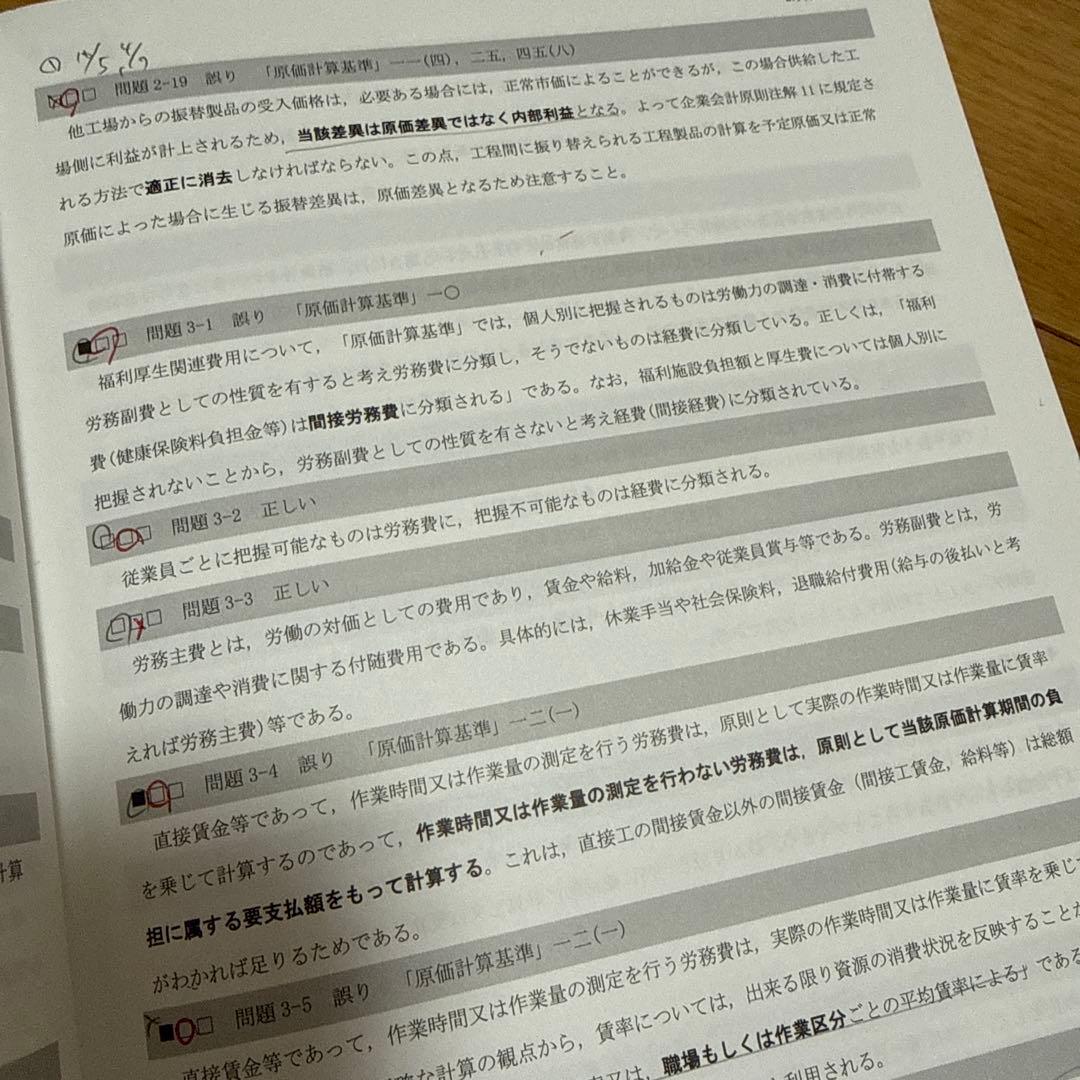 問題2-19 誤り 「原価計算基準」一一(四)，二五，四五(八)
他工場からの振替製品の受入価格は，必要ある場合には，正常市価によることができるが，この場合供給した工
場側に利益が計上されるため，当該差異は原価差異ではなく内部利益となる。よって企業会計原則注解11に規定さ
れる方法で適正に消去しなければならない。この点，工程間に振り替えられる工程製品の計算を予定原価又は正常
原価によった場合に生じる振替差異は，原価差異となるため注意すること。
問題3-1 誤り 「原価計算基準」一〇
福利厚生関連費用について，「原価計算基準」では，個人別に把握されるものは労働力の調達・消費に付帯する
労務副費としての性質を有すると考え労務費に分類し，そうでないものは経費に分類している。正しくは，「福利
費(健康保険料負担金等)は間接労務費に分類される」である。なお，福利施設負担額と厚生費については個人別に
把握されないことから，労務副費としての性質を有さないと考え経費(間接経費)に分類されている。
問題3-2 正しい
従業員ごとに把握可能なものは労務費に，把握不可能なものは経費に分類される。
問題3-3 正しい
労務主費とは，労働の対価としての費用であり，賃金や給料，加給金や従業員賞与等である。労務副費とは，労
働力の調達や消費に関する付随費用である。具体的には，休業手当や社会保険料，退職給付費用(給与の後払いと考
えれば労務主費)等である。
問題3-4 誤り 「原価計算基準」一二(一)
直接賃金等であって，作業時間又は作業量の測定を行う労務費は，原則として実際の作業時間又は作業量に賃率
を乗じて計算するのであって，作業時間又は作業量の測定を行わない労務費は，原則として当該原価計算期間の負
担に属する要支払額をもって計算する。これは，直接工の間接賃金以外の間接賃金（間接工賃金，給料等）は総額
がわかれば足りるためである。
問題3-5 誤り 「原価計算基準」一二(一)
直接賃金等であって，作業時間又は作業量の測定を行う労務費は，実際の作業時間又は作業量に賃率を乗じ
な計算の観点から，賃率については，出来る限り資源の消費状況を反映することが
又は，職場もしくは作業区分ごとの平均賃率による」である
利用される。
計算